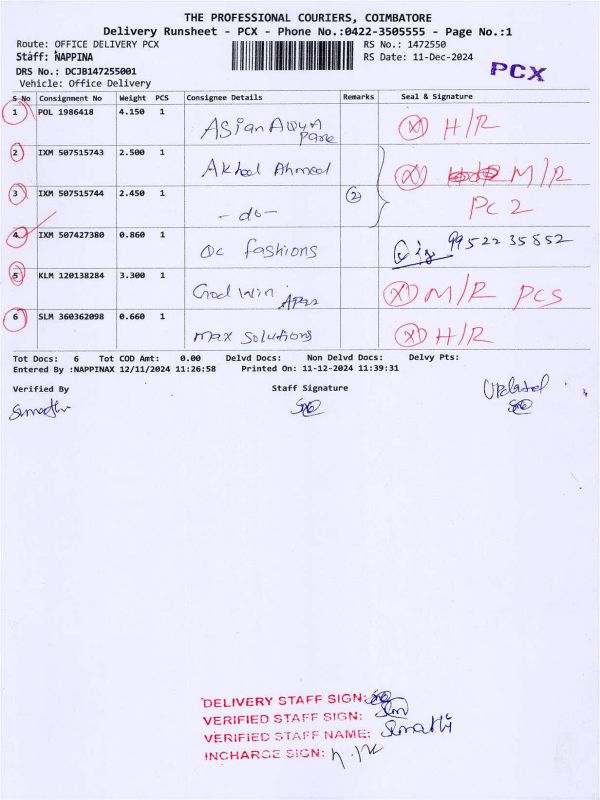 THE PROFESSIONAL COURIERS, COIMBATORE
Delivery Runsheet - PCX - Phone No.:0422-3505555 - Page No.:1
Route: OFFICE DELIVERY PCX RS No.: 1472550
Staff: NAPPINA RS Date: 11-Dec-2024
DRS No.: DCJB147255001 PCX
Vehicle: Office Delivery
S No Consignment No Weight PCS Consignee Details Remarks Seal & Signature
1 POL 1986418 4.150 1 Asian Aqua Park (X) H/R
2 IXM 507515743 2.500 1 Akheel Ahmed (X) M/R
3 IXM 507515744 2.450 1 - do - (2) PC 2
4 IXM 507427380 0.860 1 Qc fashions 9952235852
5 KLM 120138284 3.300 1 God win (X) M/R PCS
6 SLM 360362098 0.660 1 max Solutions (X) H/R
Tot Docs: 6 Tot COD Amt: 0.00 Delvd Docs: Non Delvd Docs: Delvy Pts:
Entered By :NAPPINAX 12/11/2024 11:26:58 Printed On: 11-12-2024 11:39:31
Verified By Staff Signature Updated
DELIVERY STAFF SIGN:
VERIFIED STAFF SIGN:
VERIFIED STAFF NAME: Sumathi
INCHARGE SIGN: